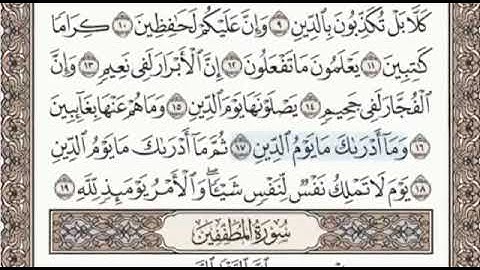 كَلَّا بَلْ تُكَذِّبُونَ بِالدِّينِ ٩ وَإِنَّ عَلَيْكُمْ لَحَٰفِظِينَ ١٠ كِرَامًا
كَٰتِبِينَ ١١ يَعْلَمُونَ مَا تَفْعَلُونَ ١٢ إِنَّ الْأَبْرَارَ لَفِى نَعِيمٍ ١٣ وَإِنَّ
الْفُجَّارَ لَفِى جَحِيمٍ ١٤ يَصْلَوْنَهَا يَوْمَ الدِّينِ ١٥ وَمَا هُمْ عَنْهَا بِغَآئِبِينَ
١٦ وَمَآ أَدْرَىٰكَ مَا يَوْمُ الدِّينِ ١٧ ثُمَّ مَآ أَدْرَىٰكَ مَا يَوْمُ الدِّينِ
١٨ يَوْمَ لَا تَمْلِكُ نَفْسٌ لِّنَفْسٍ شَيْـًٔا ۖ وَالْأَمْرُ يَوْمَئِذٍ لِّلَّهِ ١٩
سُورَةُ الْمُطَفِّفِينَ